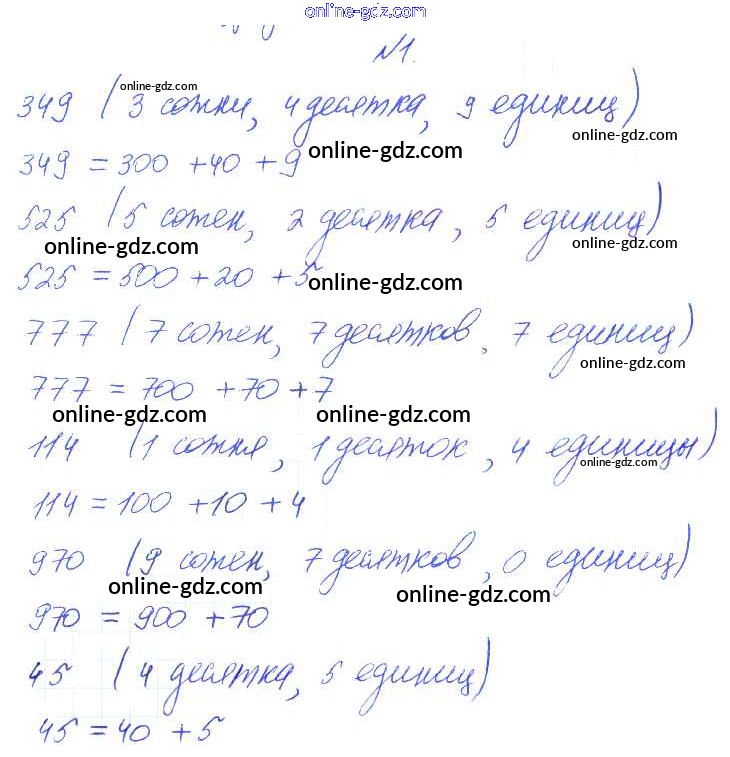 online-gdz.com
№1.
online-gdz.com
349 (3 сотни, 4 десятка, 9 единиц)
online-gdz.com
349 = 300 + 40 + 9
online-gdz.com
525 (5 сотен, 2 десятка, 5 единиц)
online-gdz.com online-gdz.com
525 = 500 + 20 + 5
online-gdz.com
777 (7 сотен, 7 десятков, 7 единиц)
online-gdz.com
777 = 700 + 70 + 7
online-gdz.com online-gdz.com
114 (1 сотня, 1 десяток, 4 единицы)
online-gdz.com
114 = 100 + 10 + 4
970 (9 сотен, 7 десятков, 0 единиц)
online-gdz.com online-gdz.com
970 = 900 + 70
45 (4 десятка, 5 единиц)
45 = 40 + 5